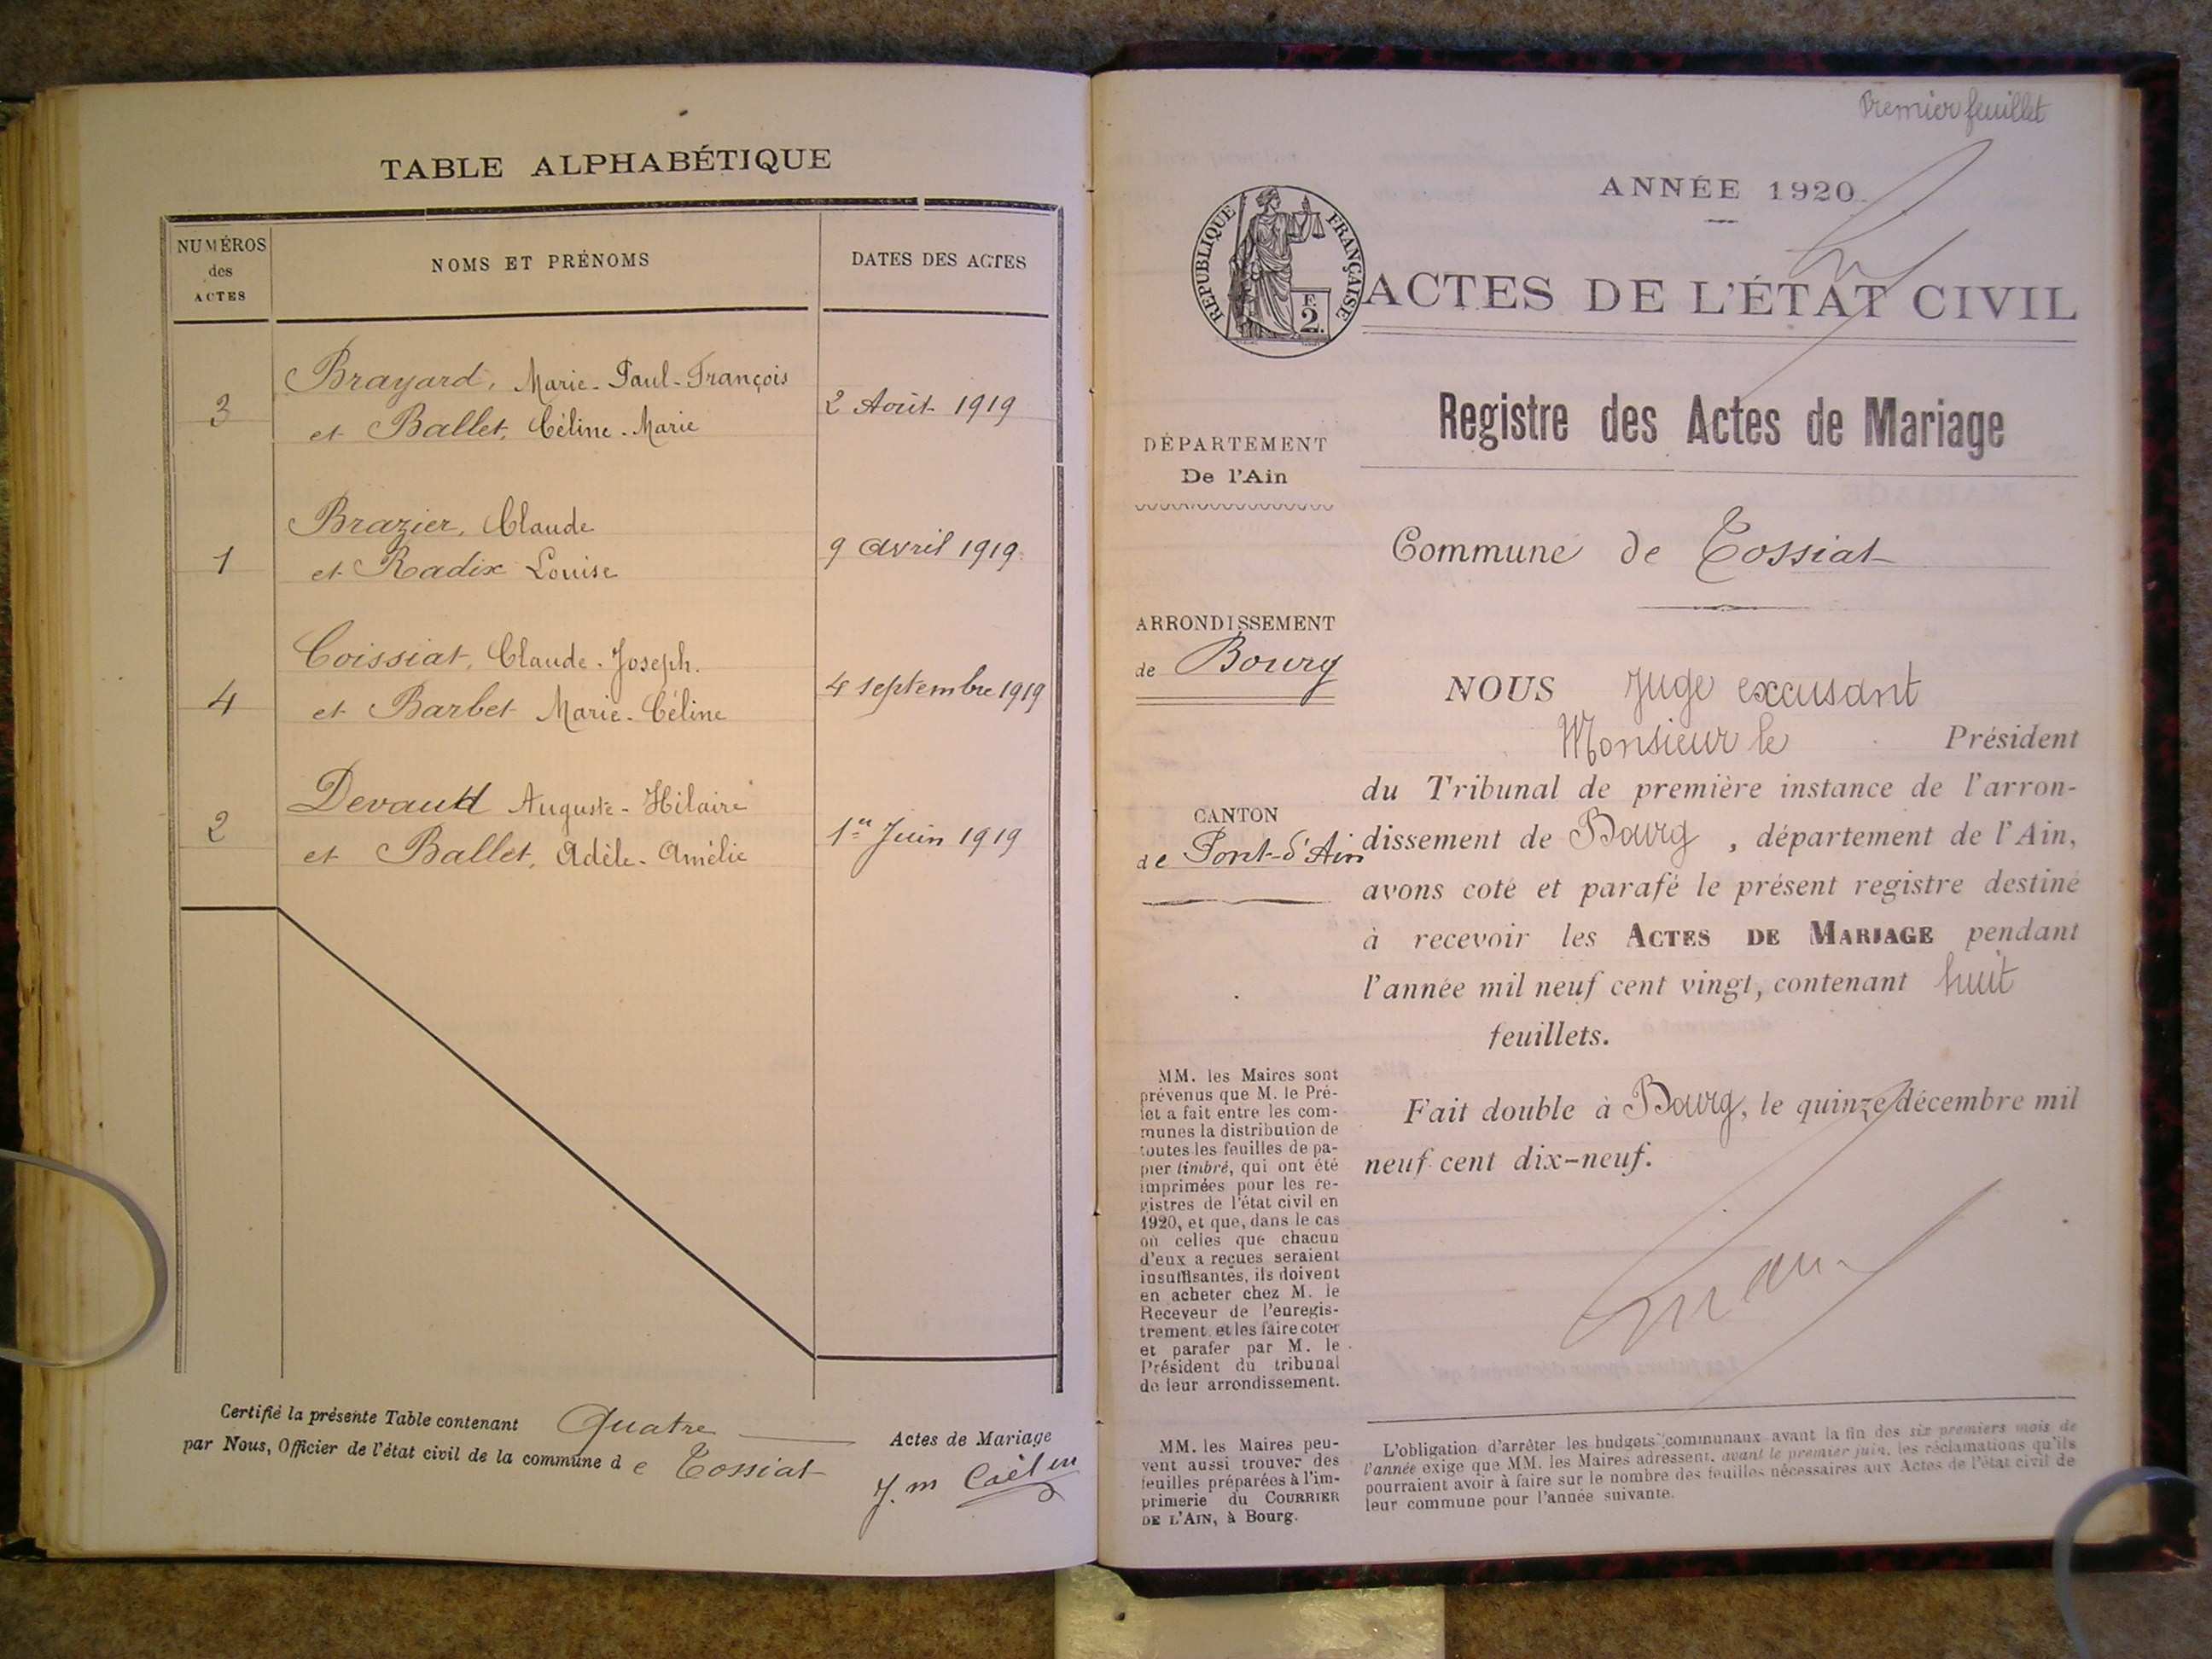 TABLE ALPHABÉTIQUE
NUMÉROS
des
ACTES
NOMS ET PRÉNOMS
DATES DES ACTES
3
Brayard, Marie-Paul-François
et Ballet, Céline-Marie
2 Août 1919
1
Brazier, Claude
et Radix Louise
9 avril 1919.
4
Coissiat, Claude-Joseph.
et Barbet Marie-Céline
4 septembre 1919
2
Devaud Auguste-Hilaire
et Ballet, Adèle-Amélie
1er Juin 1919
Certifié la présente Table contenant Quatre Actes de Mariage
par Nous, Officier de l'état civil de la commune de Tossiat
J. m
Premier feuillet
ANNÉE 1920.
RÉPUBLIQUE FRANÇAISE
F.
2.
ACTES DE L'ÉTAT CIVIL
Registre des Actes de Mariage
DÉPARTEMENT
De l'Ain
Commune de Tossiat
ARRONDISSEMENT
de Bourg
CANTON
de Pont-d'Ain
NOUS Juge excusant
Monsieur le Président
du Tribunal de première instance de l'arron-
dissement de Bourg, département de l'Ain,
avons coté et parafé le présent registre destiné
à recevoir les ACTES DE MARIAGE pendant
l'année mil neuf cent vingt, contenant huit
feuillets.
Fait double à Bourg, le quinze décembre mil
neuf cent dix-neuf.
MM. les Maires sont
prévenus que M. le Pré-
fet a fait entre les com-
munes la distribution de
toutes les feuilles de pa-
pier timbré, qui ont été
imprimées pour les re-
gistres de l'état civil en
1920, et que, dans le cas
où celles que chacun
d'eux a reçues seraient
insuffisantes, ils doivent
en acheter chez M. le
Receveur de l'enregis-
trement et les faire coter
et parafer par M. le
Président du tribunal
de leur arrondissement.
MM. les Maires peu-
vent aussi trouver des
feuilles préparées à l'im-
primerie du COURRIER
DE L'AIN, à Bourg.
L'obligation d'arrêter les budgets communaux avant la fin des six premiers mois de
l'année exige que MM. les Maires adressent, avant le premier juin, les réclamations qu'ils
pourraient avoir à faire sur le nombre des feuilles nécessaires aux Actes de l'état civil de
leur commune pour l'année suivante.